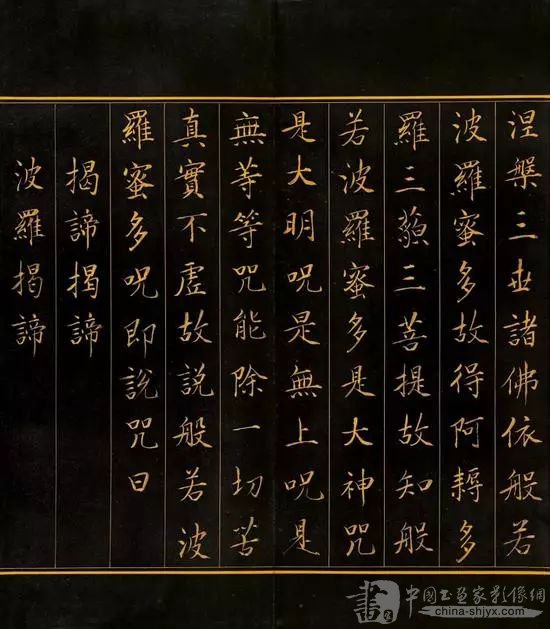 涅槃三世諸佛依般若
波羅蜜多故得阿耨多
羅三藐三菩提故知般
若波羅蜜多是大神咒
是大明呪是無上呪是
無等等咒能除一切苦
真實不虛故説般若波
羅蜜多呪即說咒曰
揭諦揭諦
波羅揭諦
書 中國書画家影像網
china-shjyx.com